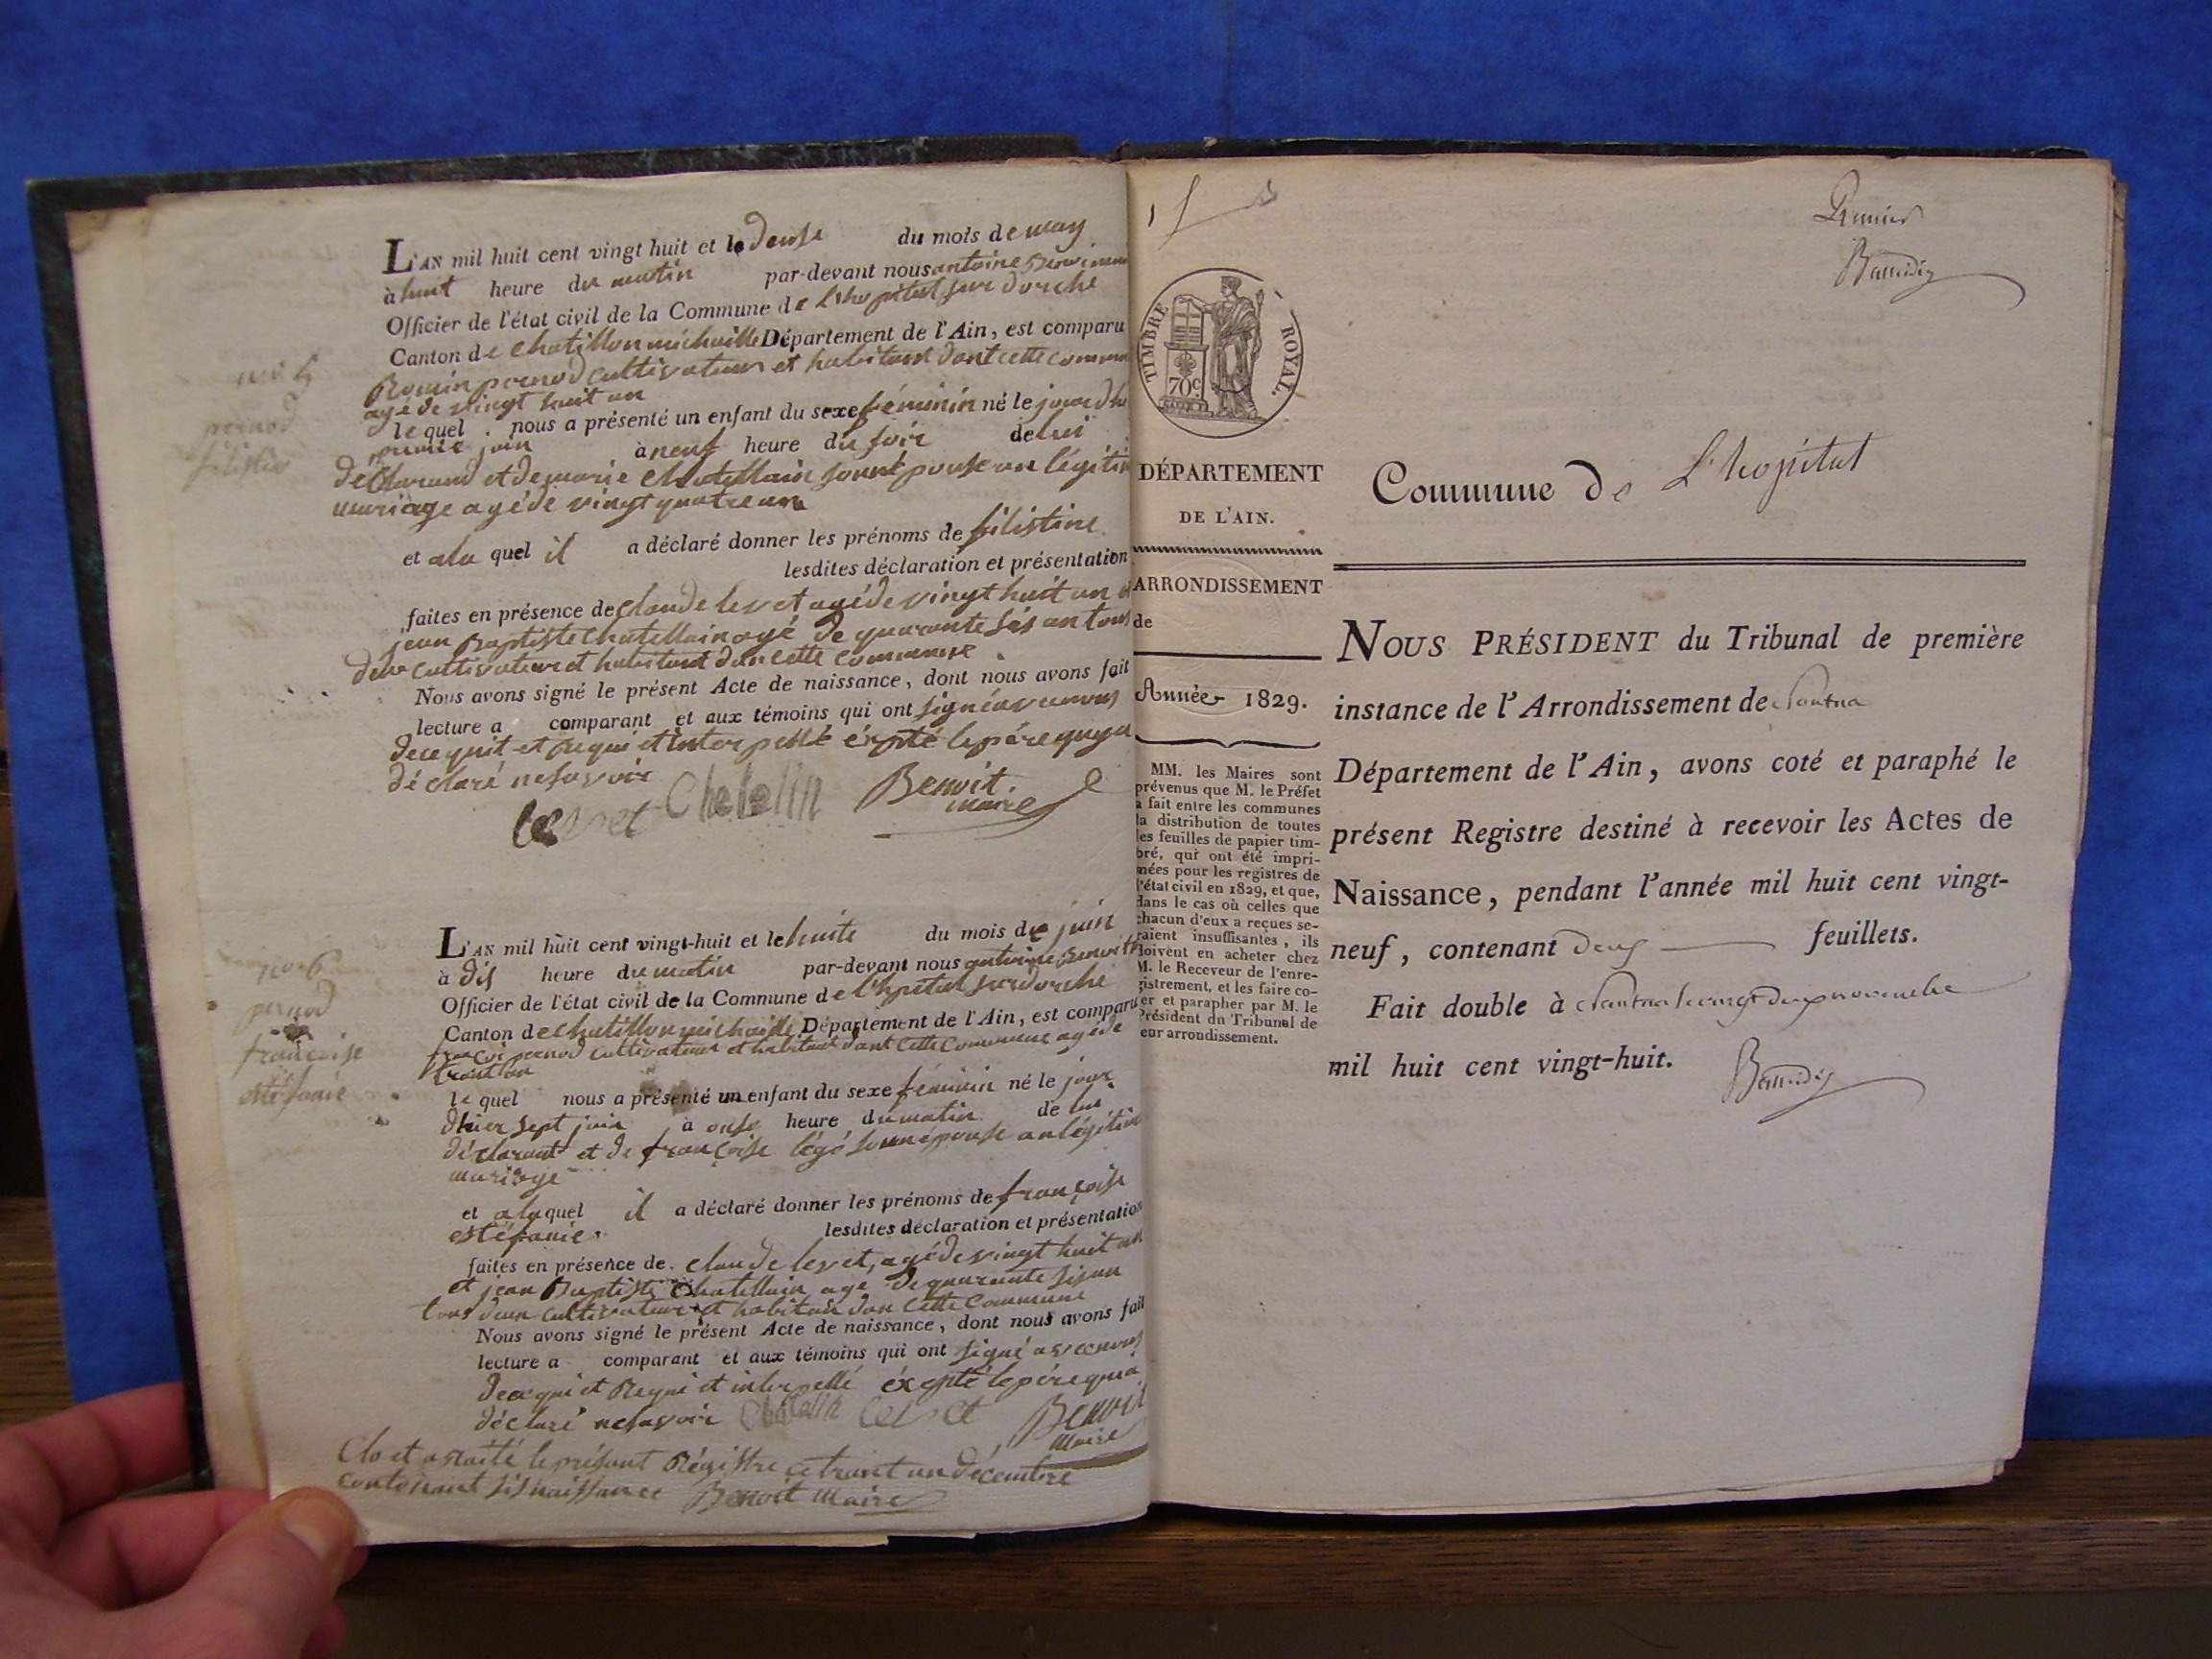 no 5
pernod
filistine
L'AN mil huit cent vingt huit et le deuse du mois de may
à huit heure du matin par-devant nous antoine
Officier de l'état civil de la Commune de l'hopital sur dorche
Canton de chatillon michaille Département de l'Ain, est comparu
Romin pernod cultivateur et habitant dant cette
agé de vingt huit an
le quel nous a présenté un enfant du sexe féminin né le jour
juin à neuf heure du soir de lui
déclarand et de marie chatellain sonné pouse an
mariage agé de vingt quatre an
et ala quel il a déclaré donner les prénoms de filistine
lesdites déclaration et présentation
faites en présence de claude levet agé de vingt huit an
jean Baptiste chatellain agé de quarante sis an tous
deux cultivateur et habitant dan cette commune
Nous avons signé le présent Acte de naissance, dont nous avons fait
lecture a comparant et aux témoins qui ont signé avec nous
de ce quit et requi et interpellé éxpté le pére
déclaré ne savoir
levet Chatelin Benoit
maire
no 6
pernod
françoise
estéfanie
L'AN mil huit cent vingt-huit et le huite du mois de juin
à dis heure du matin par-devant nous antoine Benoit
Officier de l'état civil de la Commune de l'hpital sur dorche
Canton de chatillon michaille Département de l'Ain, est comparu
pernod cultivateur et habitant dant cette commune agé de
trant an
le quel nous a présenté un enfant du sexe féminin né le jour
dhier sept juin à onse heure du matin de lui
déclarant et de françoise légé sonn epouse an
mariage
et ala quel il a déclaré donner les prénoms de françoise
estéfanie lesdites déclaration et présentation
faites en présence de claude levet, agé de vingt huit an
et jean Baptiste chatellain agé de quarante sis an
tous deux cultivateur et habitan dan cette commune
Nous avons signé le présent Acte de naissance, dont nous avons fait
lecture a comparant et aux témoins qui ont signé avec nous
de ce qui et Requi et interpellé éxcpté le pére qui a
déclaré ne savoir Chatelin levet Benoit
maire
Clo et araité le présant Régistre ce trant un décembre
contenant sis naissance Benoit maire
1
Premier
TIMBRE ROYAL.
70c
DÉPARTEMENT
DE L'AIN.
ARRONDISSEMENT
de
Année 1829.
MM. les Maires sont
prévenus que M. le Préfet
a fait entre les communes
la distribution de toutes
les feuilles de papier tim-
bré, qui ont été impri-
mées pour les registres de
l'état civil en 1829, et que,
dans le cas où celles que
chacun d'eux a reçues se-
raient insuffisantes, ils
doivent en acheter chez
M. le Receveur de l'enre-
gistrement, et les faire co-
ter et parapher par M. le
Président du Tribunal de
leur arrondissement.
Commune de L'hopital
NOUS PRÉSIDENT du Tribunal de première
instance de l'Arrondissement de Nantua
Département de l'Ain, avons coté et paraphé le
présent Registre destiné à recevoir les Actes de
Naissance, pendant l'année mil huit cent vingt-
neuf, contenant deux feuillets.
Fait double à Nantua le vingt deux novembre
mil huit cent vingt-huit.